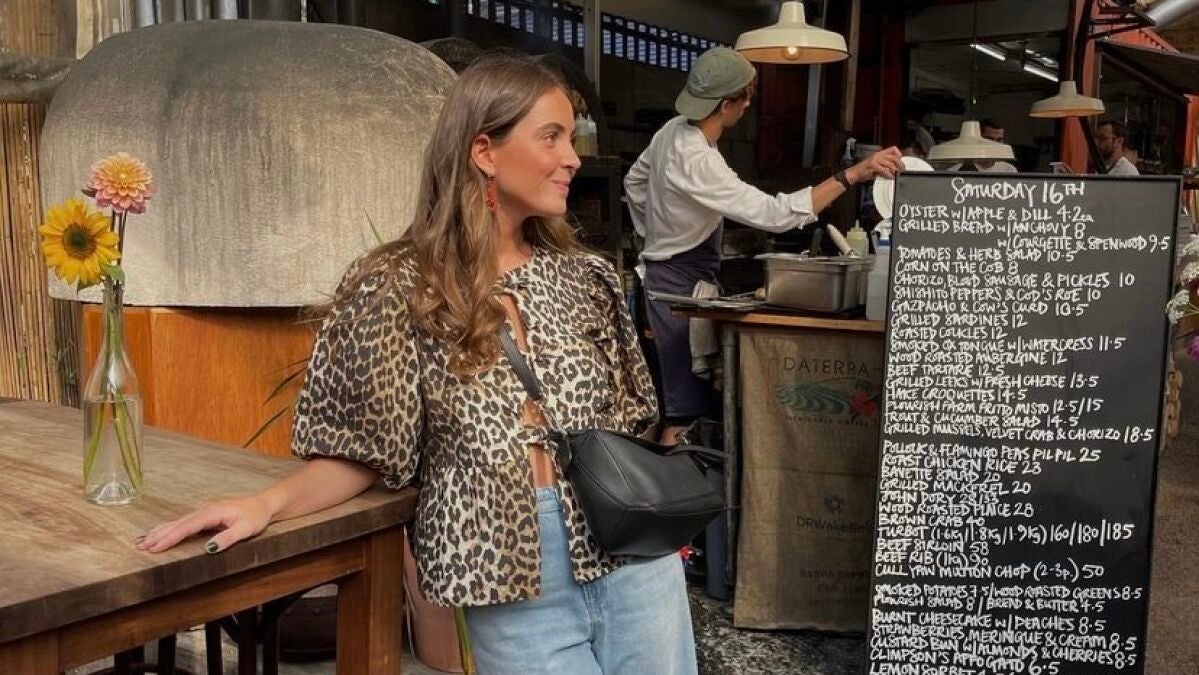 SATURDAY 16TH
OYSTER W/ APPLE & DILL 4.2ea
GRILLED BREAD W/ ANCHOVY 8
W/ COURGETTE & SPENWOOD 9.5
TOMATOES & HERB SALAD 10.5
CORN ON THE COB 8
CHORIZO, BLOOD SAUSAGE & PICKLES 10
SHISHITO PEPPERS & COD'S ROE 10
GAZPACHO & COW'S CURD 10.5
GRILLED SARDINES 12
ROASTED COCKLES 12
SMOKED OX TONGUE W/ WATERCRESS 11.5
WOOD ROASTED AUBERGINE 12
BEEF TARTARE 12.5
GRILLED LEEKS W/ FRESH CHEESE 13.5
HAKE CROQUETTES 14.5
FLOURISH FARM FRITO MISTO 12.5/15
TROUT & CUCUMBER SALAD 14.5
GRILLED MUSSELS, VELVET CRAB & CHORIZO 18.5
POLLOCK & FLAMINGO PEAS PIL PIL 25
ROAST CHICKEN RICE 23
BAVETTE SALAD 20
GRILLED MACKEREL 20
JOHN DORY 28/33
WOOD ROASTED PLAICE 28
BROWN CRAB 40
TURBOT (1.6KG/1.8KG/1.9KG) 160/180/185
BEEF SIRLOIN 58
BEEF RIB (1KG) 90
CULL YAW MUTTON CHOP (2-3p.) 50
SMOKED POTATOES 7.5 / WOOD ROASTED GREENS 8.5
FLOURISH SALAD 8 / BREAD & BUTTER 4.5
BURNT CHEESECAKE W/ PEACHES 8.5
STRAWBERRIES, MERINGUE & CREAM 8.5
CUSTARD BUN W/ ALMONDS & CHERRIES 8.5
CLIMPSON'S AFFOGATO 6.5
LEMON SORBET
DATERRA
DRWakefield